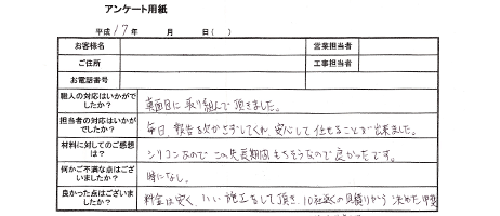 アンケート用紙
平成17年 月 日( )
お客様名 営業担当者
ご住所 工事担当者
お電話番号
職人の対応はいかがでしたか? 真面目に取り組んで頂きました。
担当者の対応はいかがでしたか? 毎日、報告を欠かさずしてくれ、安心して任せることが出来ました。
材料に対してのご感想は? シリコンなので この先長期間もちそうなので良かったです。
何かご不満な点はございましたか? 特になし。
良かった点はございましたか? 料金は安く、いい施工をして頂き、10社近くの見積りから決めた